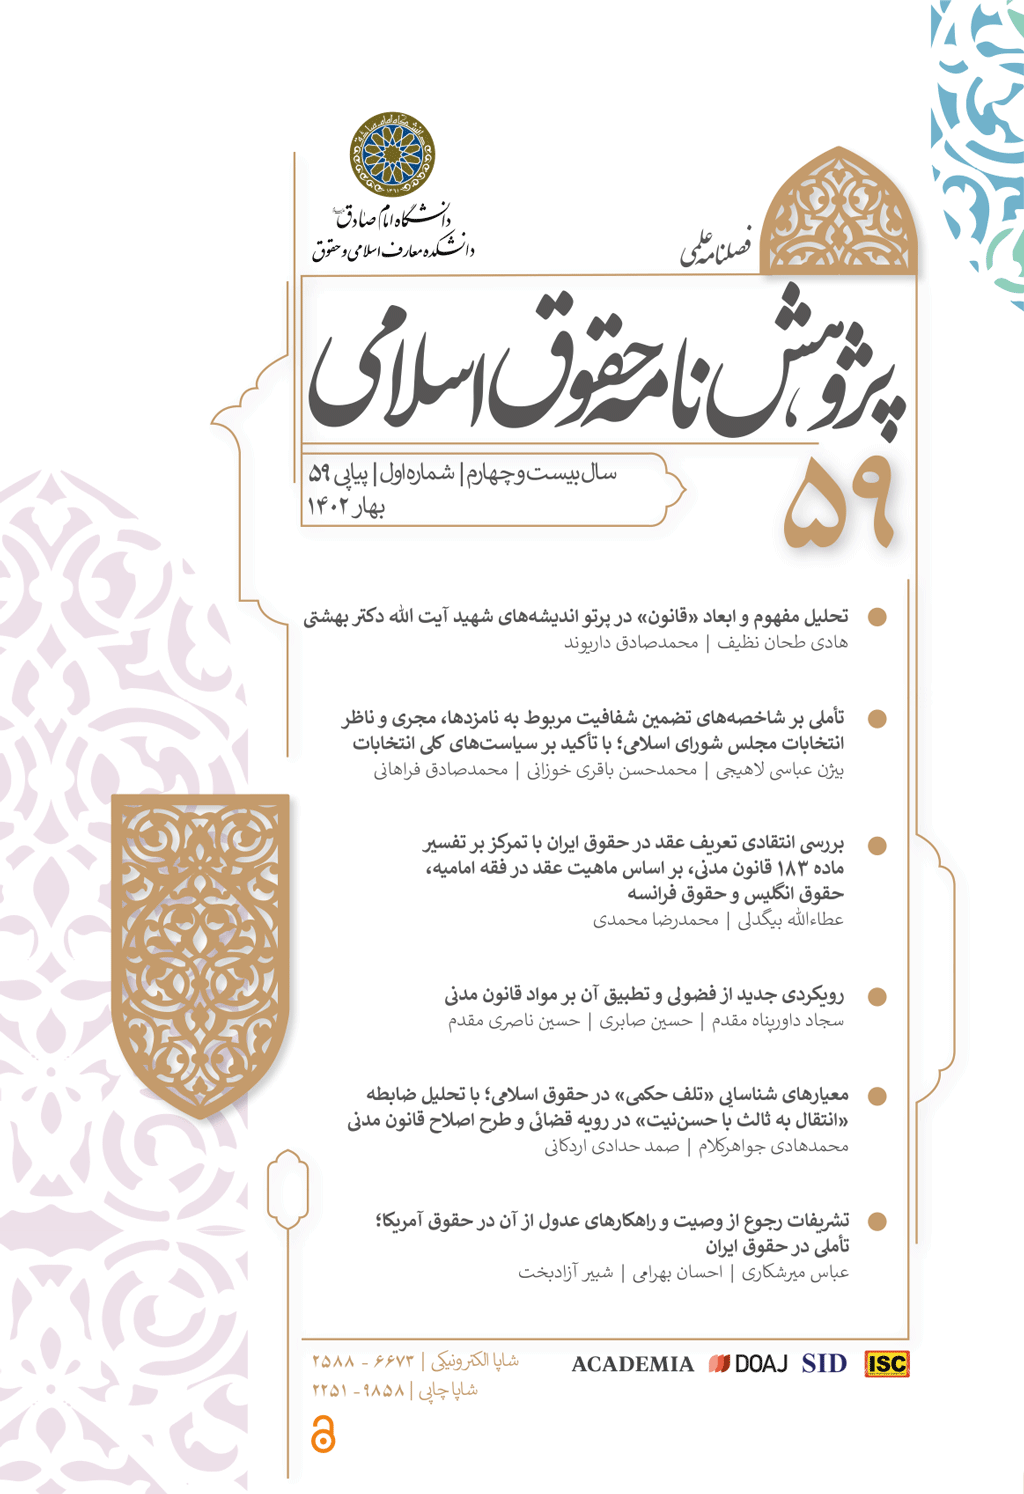 دانشگاه امام صادق
دانشکده معارف اسلامی و حقوق
فصلنامه علمی
پژوهش نامه حقوق اسلامی
۵۹
سال بیست و چهارم | شماره اول | پیاپی ۵۹
بهار ۱۴۰۲
تحلیل مفهوم و ابعاد «قانون» در پرتو اندیشه‌های شهید آیت الله دکتر بهشتی
هادی طحان نظیف | محمدصادق داریوند
تأملی بر شاخصه‌های تضمین شفافیت مربوط به نامزدها، مجری و ناظر
انتخابات مجلس شورای اسلامی؛ با تأکید بر سیاست‌های کلی انتخابات
بیژن عباسی لاهیجی | محمدحسن باقری خوزانی | محمدصادق فراهانی
بررسی انتقادی تعریف عقد در حقوق ایران با تمرکز بر تفسیر
ماده ۱۸۳ قانون مدنی، بر اساس ماهیت عقد در فقه امامیه،
حقوق انگلیس و حقوق فرانسه
عطاءالله بیگدلی | محمدرضا محمدی
رویکردی جدید از فضولی و تطبیق آن بر مواد قانون مدنی
سجاد داورپناه مقدم | حسین صابری | حسین ناصری مقدم
معیارهای شناسایی «تلف حکمی» در حقوق اسلامی؛ با تحلیل ضابطه
«انتقال به ثالث با حسن‌نیت» در رویه قضائی و طرح اصلاح قانون مدنی
محمدهادی جواهرکلام | صمد حدادی اردکانی
تشریفات رجوع از وصیت و راهکارهای عدول از آن در حقوق آمریکا؛
تأملی در حقوق ایران
عباس میرشکاری | احسان بهرامی | شبیر آزادبخت
شاپا الکترونیکی | ۲۵۸۸ - ۶۶۷۳
شاپا چاپی | ۲۲۵۱ - ۹۸۵۸
ACADEMIA DOAJ SID ISC